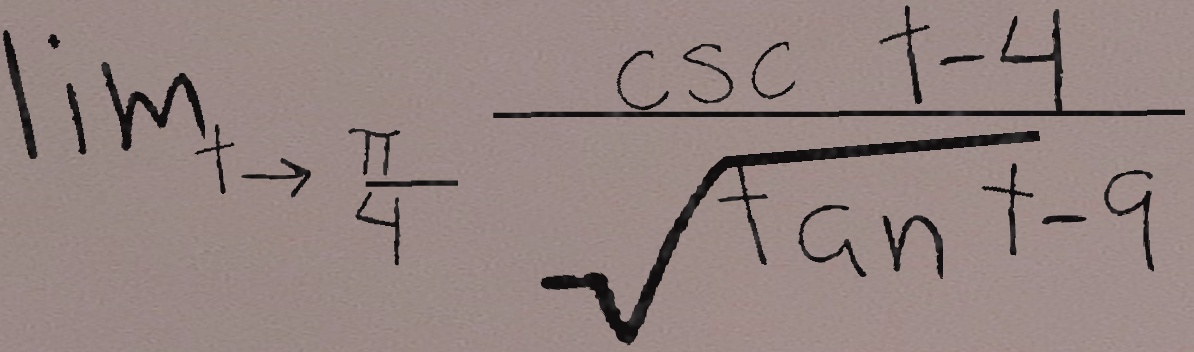 \lim_{t \to \frac{\pi}{4}} \frac{\csc t - 4}{\sqrt{\tan t} - 9}